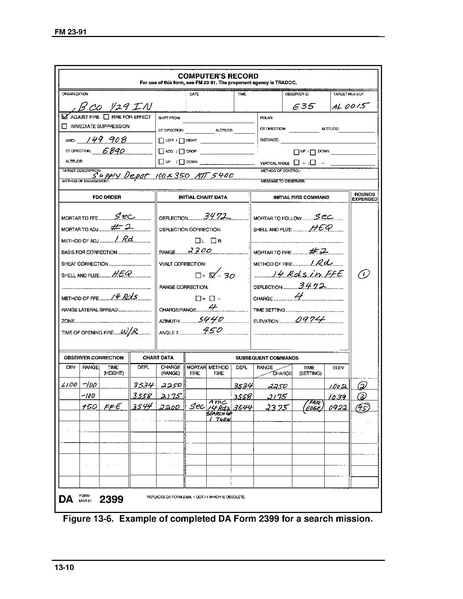 FM 23-91
COMPUTER'S RECORD
For use of this form, see FM 23-91. The proponent agency is TRADOC.
ORGANIZATION DATE TIME OBSERVER ID TARGET NUMBER
B CO 1/29 IN G35 AL 0015
ADJUST FIRE FIRE FOR EFFECT SHIFT FROM: POLAR:
IMMEDIATE SUPPRESSION OT DIRECTION: ALTITUDE: OT DIRECTION: ALTITUDE:
GRID: 149 908 LEFT / RIGHT DISTANCE:
OT DIRECTION: 6890 ADD / DROP UP / DOWN
ALTITUDE: UP / DOWN VERTICAL ANGLE + / -
TARGET DESCRIPTION: Supply Depot 100 x 350 ATT 5400 METHOD OF CONTROL:
METHOD OF ENGAGEMENT: MESSAGE TO OBSERVER:
FDC ORDER INITIAL CHART DATA INITIAL FIRE COMMAND ROUNDS EXPENDED
MORTAR TO FFE Sec DEFLECTION 3472 MORTAR TO FOLLOW Sec
MORTAR TO ADJ #2 DEFLECTION CORRECTION: SHELL AND FUZE HEQ
METHOD OF ADJ 1 Rd L R
BASIS FOR CORRECTION RANGE 2200 MORTAR TO FIRE #2
SHEAF CORRECTION VI/ALT CORRECTION: METHOD OF FIRE 1 Rd
SHELL AND FUZE HEQ + - 30 14 Rds in FFE 1
RANGE CORRECTION: DEFLECTION 3472
METHOD OF FFE 14 Rds + - CHARGE 4
RANGE LATERAL SPREAD CHARGE/RANGE 4 TIME SETTING
ZONE AZIMUTH 5440 ELEVATION 0974
TIME OF OPENING FIRE W/R ANGLE T 450
OBSERVER CORRECTION CHART DATA SUBSEQUENT COMMANDS
DEV RANGE TIME (HEIGHT) DEFL CHARGE (RANGE) MORTAR FIRE METHOD FIRE DEFL RANGE CHARGE TIME (SETTING) ELEV
L100 -100 3534 2250 3534 2250 1002 2
-100 3558 2175 3558 2175 1039 3
+50 FFE 3544 2200 Sec 14 Rds SEARCH UP 1 TURN 3544 2375 (FAR EDGE) 0922 45
DA FORM 2399
Figure 13-6. Example of completed DA Form 2399 for a search mission.
13-10